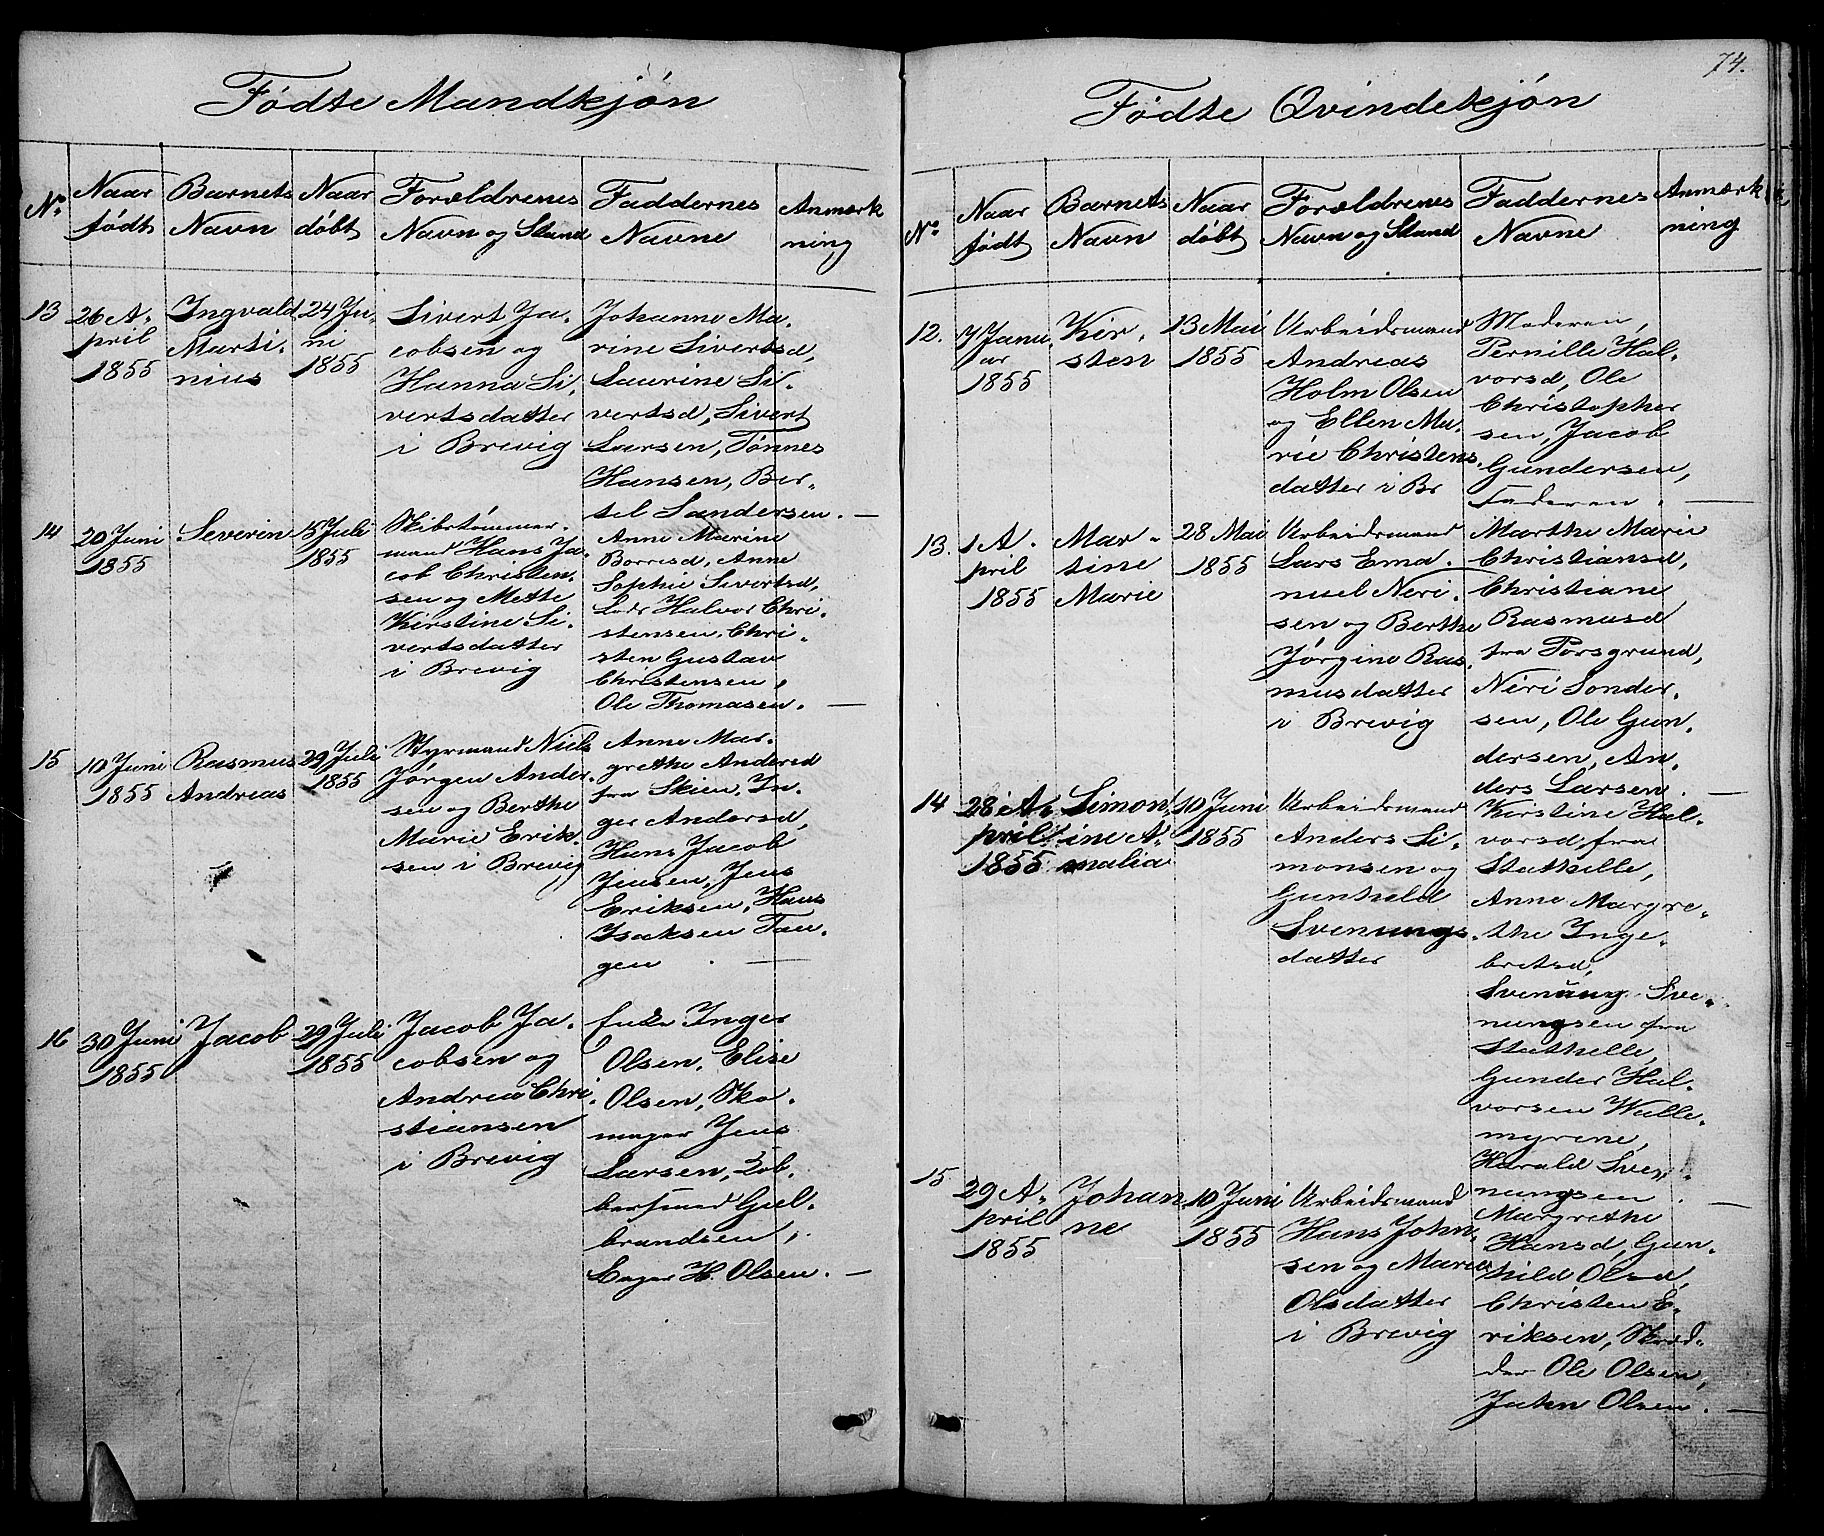 74.
Fødte Mandkjøn
No
Naar
født
Barnets
Navn
Naar
døbt
Forældrenes
Navn og Stand
Faddernes
Navne
Anmærk
ning
13
26 A-
pril
1855
Ingvald
Marti-
nius
24 Ju-
ni
1855
Sivert Ja-
cobsen og
Hanna Si-
vertsdatter
i Brevig
Johanne Ma-
rine Sivertsd,
Laurine Si-
vertsd, Sivert
Larsen, Tønnes
Hansen, Ber-
tel Sandersen. —
14
20 Juni
1855
Severin
15 Juli
1855
Skibstømmer-
mand Hans Ja-
cob Christen-
sen og Mette
Kirstine Si-
vertsdatter
i Brevig
Anne Marine
Borresd, Anne
Sophie Sivertsd,
Lods Halvor Chri-
stensen, Chri-
sten Gustav
Christensen,
Ole Thomasen. —
15
10 Juni
1855
Rasmus
Andreas
29 Juli
1855
Styrmand Niels
Jørgen Ander-
sen og Berthe
Marie Erik-
sen i Brevig
Anne Mar-
grethe Andersd
fra Skien, In-
ger Andersd,
Hans Jacob
Jensen, Jens
Eriksen, Hans
Isaksen Tan-
gen . —
16
30 Juni
1855
Jacob
29 Juli
1855
Jacob Ja-
cobsen og
Andrea Chri-
stiansen
i Brevig
Enke Inger
Olsen, Elise
Olsen, Sko-
mager Jens
Larsen, Kob-
bersmed Gul-
brandsen,
Bager H. Olsen. —
Fødte Qvindekjøn
No
Naar
født
Barnets
Navn
Naar
døbt
Forældrenes
Navn og Stand
Faddernes
Navne
Anmærk
ning
12.
7 Janu-
ar
1855
Kir-
sten
13 Mai
1855
Arbeidsmand
Andreas
Holm Olsen
og Ellen Ma-
rie Christens-
datter i Br
Moderen,
Pernille Hal-
vorsd, Ole
Christopher
sen, Jacob
Gundersen,
Faderen. —
13.
1 A-
pril
1855
Mar-
tine
Marie
28 Mai
1855
Arbeidsmand
Lars Ema-
nuel Neri-
sen og Berthe
Jørgine Ras-
musdatter
i Brevig
Marthe Marie
Christiansd,
Christiane
Rasmusd
fra Porsgrund,
Neri Sonder-
sen, Ole Gun-
dersen, An-
ders Larsen. —
14
28 A-
pril
1855
Simon-
ine A-
malia
10 Juni
1855
Arbeidsmand
Anders Si-
monsen og
Gunhild
Svenungs-
datter
Kirstine Hal-
vorsd fra
Stathelle,
Anne Margre-
the Inge-
bretsd,
Svenung Sve-
nungsen fra
Stathelle,
Gunder Hal-
vorsen Walle-
myrene,
Harald Sve-
nungsen. —
15
29 A-
pril
1855
Johan-
ne
10 Juni
1855
Arbeidsmand
Hans John-
sen og Maren
Olsdatter
i Brevig
Margrethe
Hansd, Gun-
hild Olsd,
Christen E-
riksen, Skræd-
der Ole Olsen,
John Olsen. —